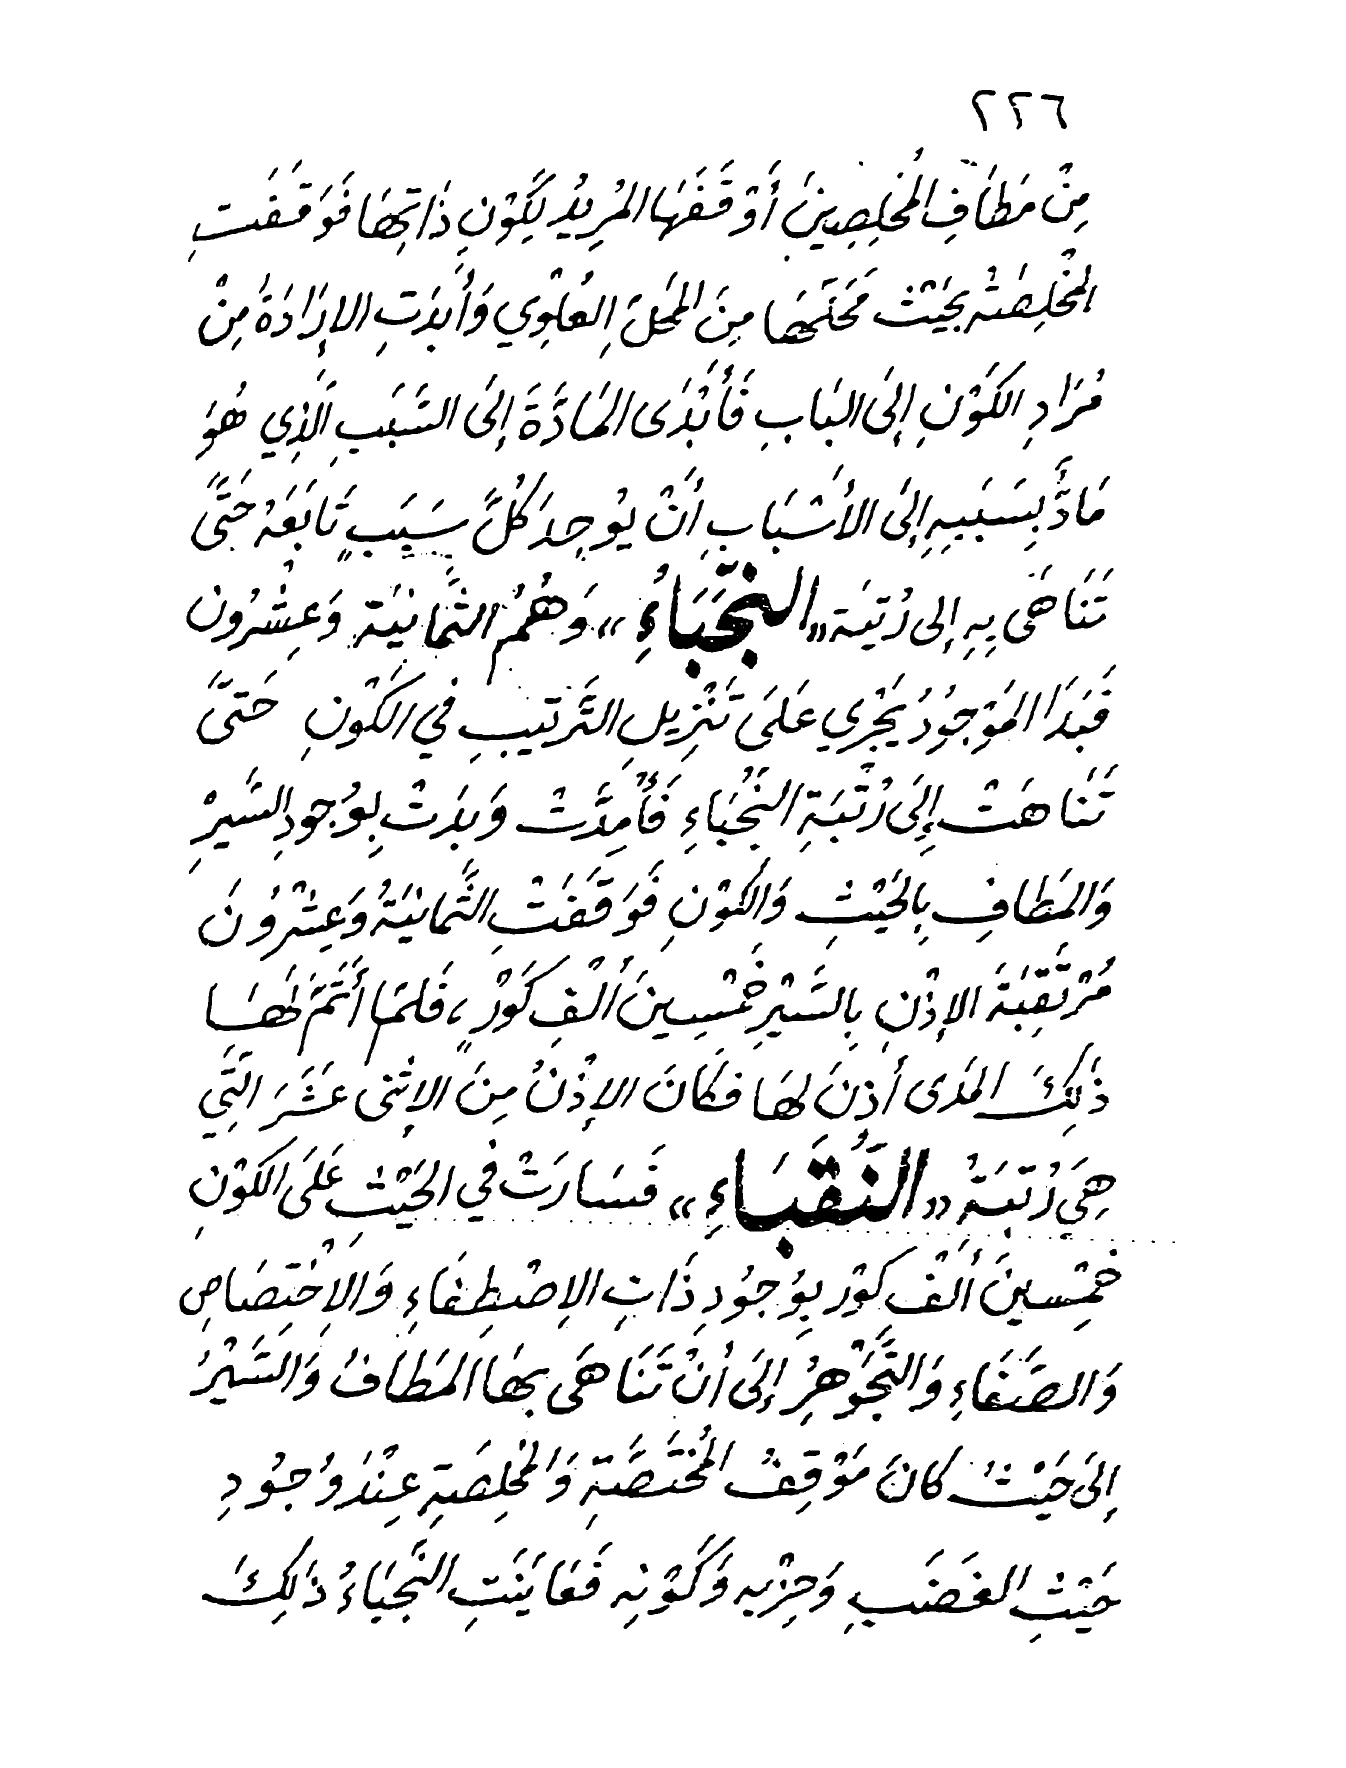 ٢٢٦
مِنْ مَطَافِ المُخْلِصِينَ أَوْقَفَهَا المُرِيدُ لِكَوْنِ ذَاتِهَا فَوَقَفَتِ
المُخْلِصَةُ بِحَيْثِ مَحَلِّهَا مِنَ المَحَلِّ العُلْوِي وَأُبْدَتِ الإِرَادَةُ مِنْ
مُرَادِ الكَوْنِ إِلَى البَابِ فَأَبْدَى المَادَّةَ إِلَى السَّبَبِ الَّذِي هُوَ
مَادٌّ بِسَبَبِهِ إِلَى الأَسْبَابِ أَنْ يُوجِدَ كُلَّ سَبَبٍ تَابَعَهُ حَتَّى
تَنَاهَى بِهِ إِلى رُتبَة «النُّجَبَاءِ» وَهُمُ الثَّمانِيَة وَعِشْرُون
فَبَدَا المَوْجُودُ يَجْرِي عَلَى تَنْزِيلِ التَّرتيبِ في الكَوْنِ حَتَّى
تَنَاهَتْ إِلَى رُتْبَةِ النُّجَبَاءِ فَأَمدَّتْ وَبدَتْ بِوُجودِ السَّيرِ
وَالمَطَافِ بِالحَيْثِ وَالكَوْنِ فَوَقَفَتْ الثَّمانِيَةُ وَعِشْرُونَ
مُرْتَقِبَةَ الإِذْنِ بِالسَّيْرِ خَمْسِينَ أَلْفِ كَوْرٍ، فَلَمَّا أَتَمَّ لَهَا
ذَلِكَ المَدَى أذِنَ لهَا فكَانَ الإِذْنُ مِنَ الإِثْنى عَشَرَ الَّتِي
هِيَ رُتبَةُ «النُّقَبَاءِ» فَسَارَتْ في الحَيْثِ عَلَى الكَوْنِ
خَمْسينَ أَلفْ كَوْر بِوُجُودِ ذَاتِ الاِصْطِفَاءِ وَالاِخْتِصَاصِ
وَالصَّفَاءِ وَالتَّجَوْهُرِ إِلَى أَنْ تَنَاهَى بِهَا المَطَافُ وَالسَّيْرُ
إِلَى حَيْثُ كانَ مَوْقِفُ المُخْتَصَّةِ وَالمُخْلِصَةِ عِنْدَ وُجُودِ
حَيْثِ الغَضَبِ وَحِزْبِهِ وَكَوْنِهِ فَعَايَنَتِ النُّجَبَاءُ ذَلِكَ